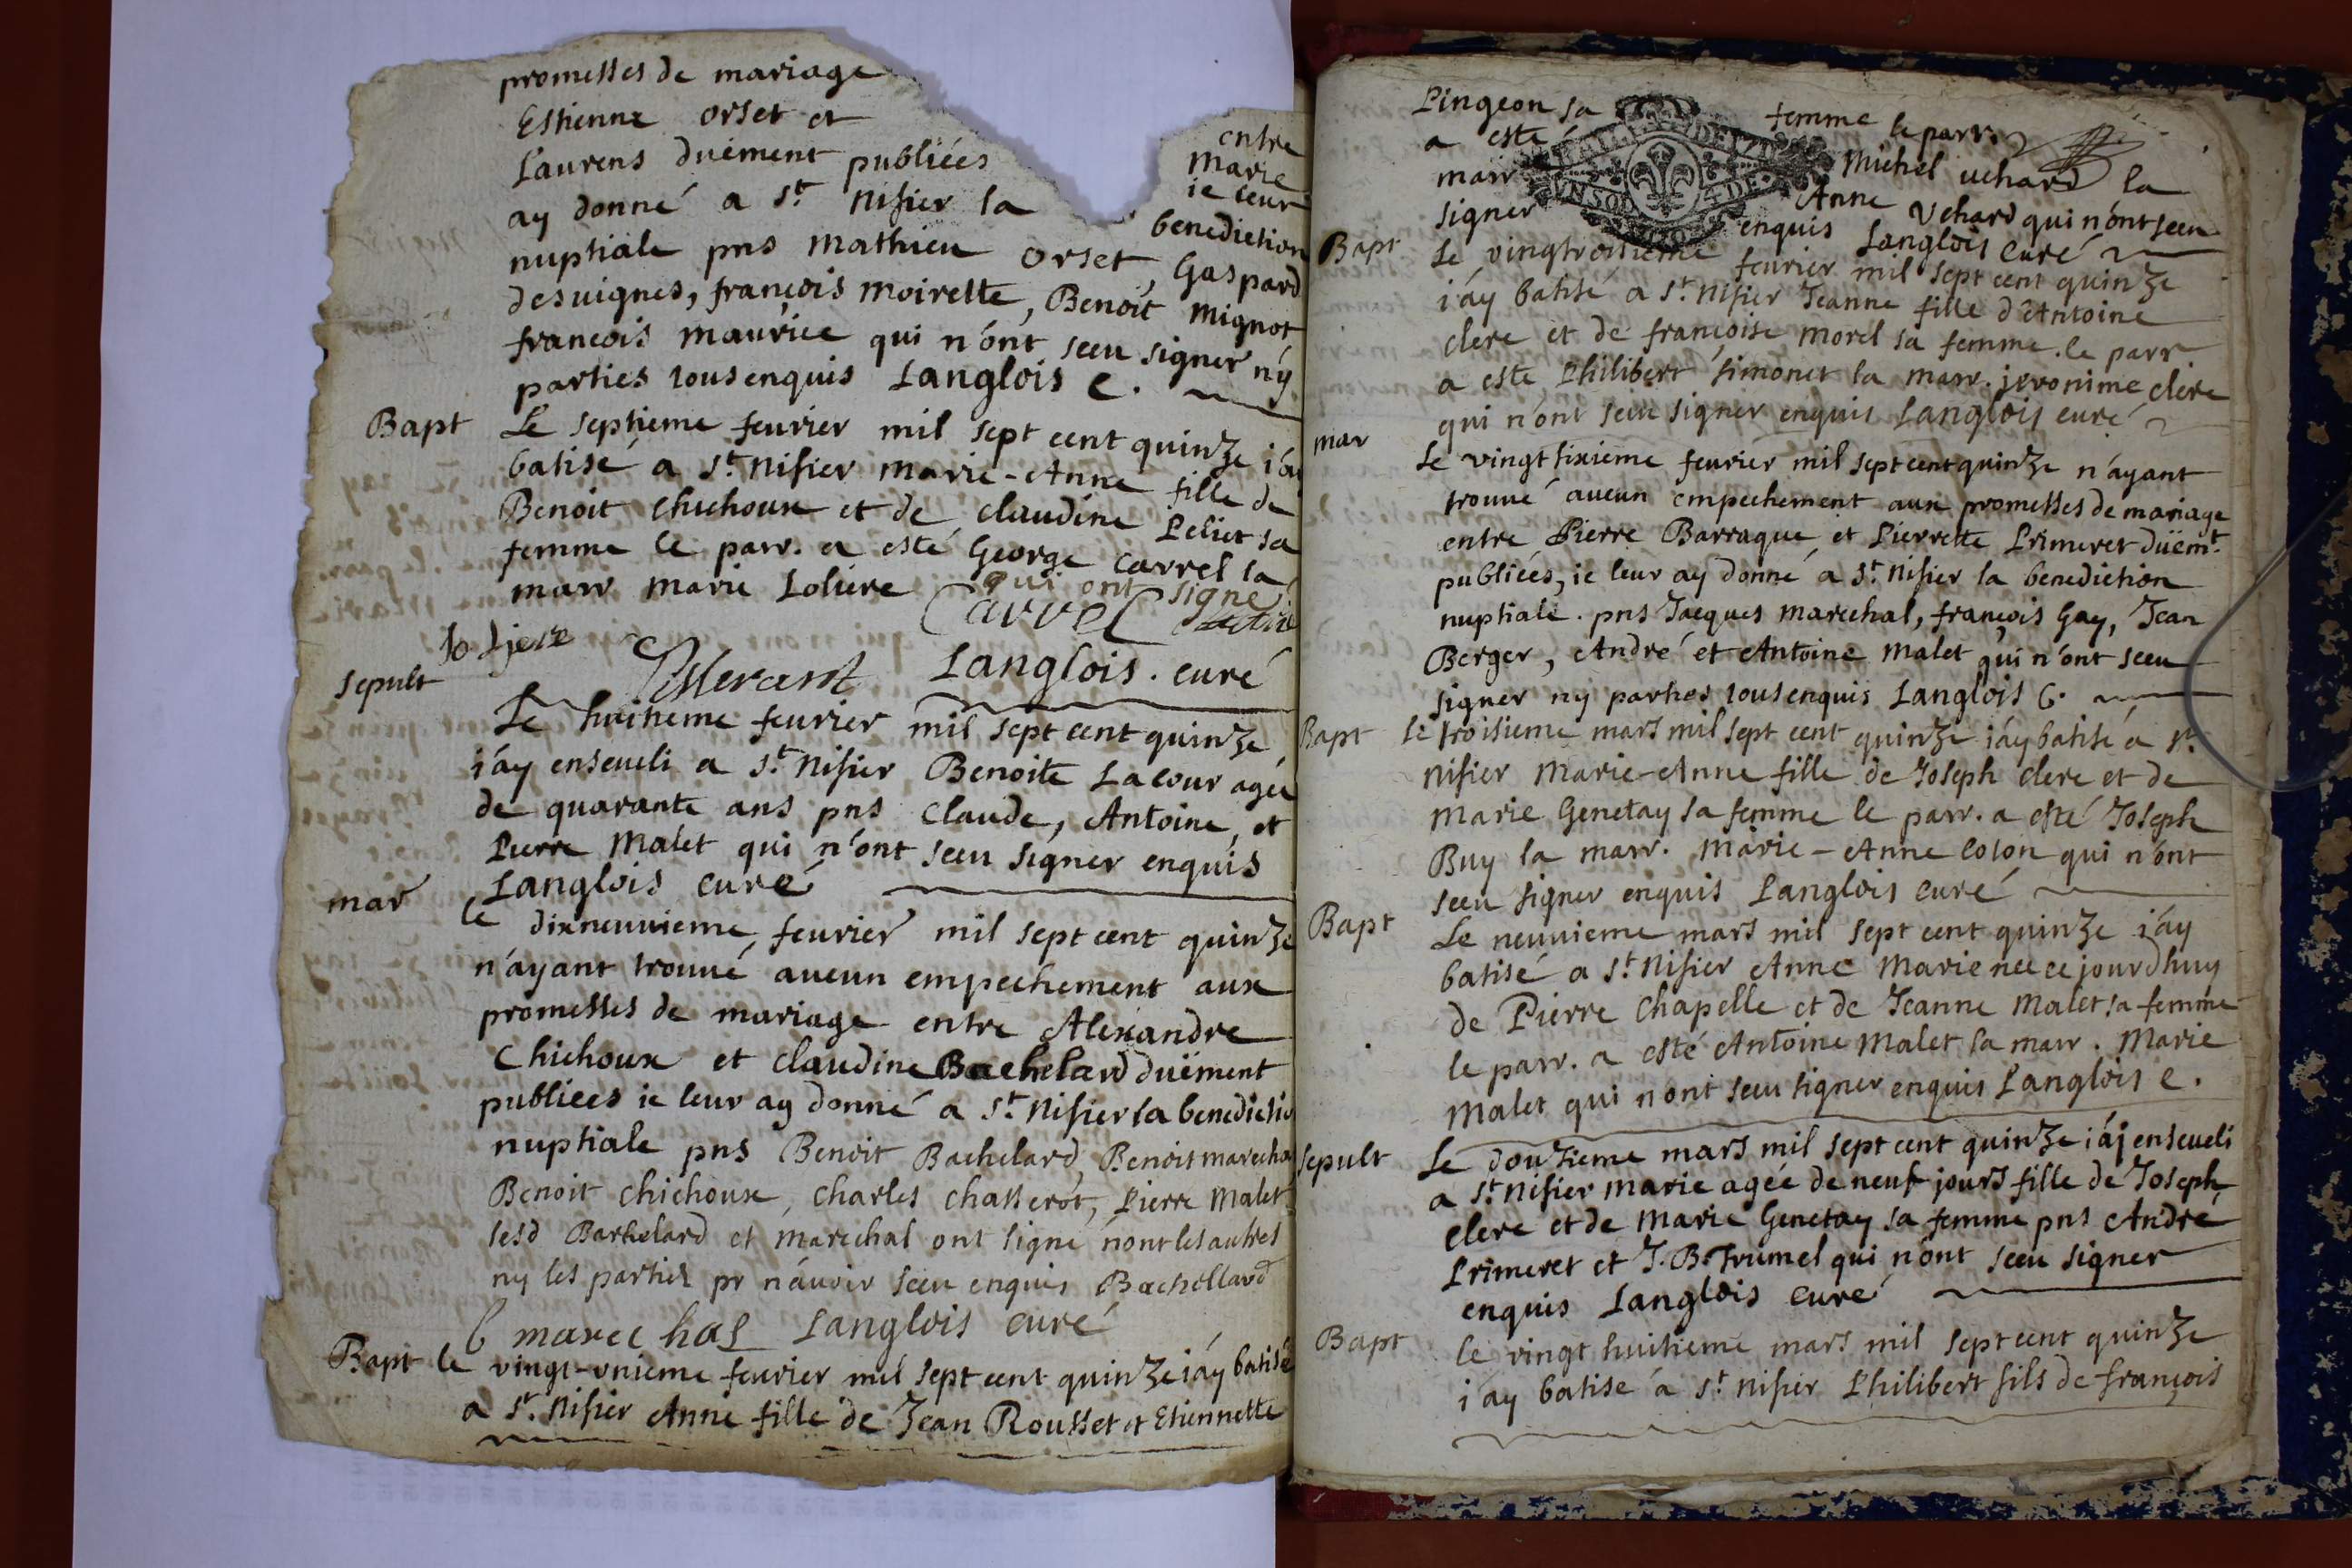 promesses de mariage entre
Estienne Orset et Marie
Laurens duëment publiées ie leur
ay donné a St. Nisier la benediction
nuptiale pns Mathieu Orset, Gaspard
desuignes, françois Moirette, Benoit Mignot
françois Maurice qui n'ont sceu signer ny
parties tous enquis Langlois c.
Bapt Le septieme feurier mil sept cent quinze i'ay
batisé a St. Nisier Marie-Anne fille de
Benoit Chichoux et de Claudine Peliet sa
femme le parr. a esté George Carrel la
marr Marie Loliere qui ont signé
Carrel
Langlois. curé
sepult Le huitieme feurier mil sept cent quinze
i'ay enseueli a St. Nisier Benoite Lacour agée
de quarante ans pns Claude, Antoine, et
Pierre Malet qui n'ont sceu signer enquis
Langlois curé
mar le dixneuuieme feurier mil sept cent quinze
n'ayant trouué aucun empechement aux
promesses de mariage entre Alexandre
Chichoux et Claudine Bachelard duëment
publiees ie leur ay donné a St. Nisier la benedictio
nuptiale pns Benoit Bachelard, Benoit marecha
Benoit Chichoux, Charles Chasserot, Pierre Malet
lesd Bachelard et Marechal ont signé nont les autres
ny les parties pr n'auoir sceu enquis Bachellard
b marechal Langlois curé
Bapt le vingt-vnieme feurier mil sept cent quinze i'ay batisé
a St. Nisier Anne fille de Jean Rousset et Etiennette
Pingeon sa femme le parr.
a esté Michel uchard la
marr Anne Vchard qui n'ont sceu
signer enquis Langlois Curé
Bapt Le vingtroisieme feurier mil sept cent quinze
i'ay batisé a St. Nisier Jeanne fille d'Antoine
clere et de françoise Morel sa femme. le parr
a esté Philibert simonet la marr. jeronime clere
qui n'ont sceu signer enquis Langlois curé
mar Le vingtsixieme feurier mil sept cent quinze n'ayant
trouué aucun empechement aux promesses de mariage
entre Pierre Barraque et Pierrette Primeret duëmt.
publiées, ie leur ay donné a St. Nisier la benediction
nuptiale. pns Jacques Marechal, françois Gay, Jean
Berger, André et Antoine Malet qui n'ont sceu
signer ny parties tous enquis Langlois C.
Bapt le troisieme mars mil sept cent quinze i'ay batisé a St.
Nisier Marie-Anne fille de Joseph clere et de
Marie Genetay sa femme le parr. a esté Joseph
Buy la marr. Marie-Anne Colon qui n'ont
sceu signer enquis Langlois curé
Bapt Le neuuieme mars mil sept cent quinze i'ay
batisé a St. Nisier Anne Marie nee ce jourdhuy
de Pierre Chapelle et de Jeanne Malet sa femme
le parr. a esté Antoine Malet la marr. Marie
Malet qui n'ont sceu signer enquis Langlois c.
sepult Le douzieme mars mil sept cent quinze i'aj enseueli
a St. Nisier Marie agée de neuf jours fille de Joseph
clere et de Marie Genetay sa femme pns André
Primeret et J. B. Frumel qui n'ont sceu signer
enquis Langlois curé
Bapt le vingt huitieme mars mil sept cent quinze
i'ay batisé a St. Nisier Philibert fils de françois